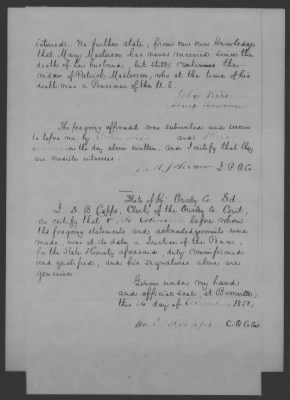 interred. We further state, from our own knowledge
that Mary Masterson has never married since the
death of her husband, but still continues the
widow of Patrick Masterson, who at the time of his
death was a Pensioner of the U.S.
The foregoing affidavit was subscribed and sworn
to before me by and
on the day above written, and I certify that they
are credible witnesses.
J. P. O. C.
State of Ky. Owsley Co. Sct.
I, Capps, Clerk of the Owsley Co. Court,
do certify that before whom
the foregoing statements and acknowledgements were
made, was at its date a Justice of the Peace,
for the State & County aforesaid, duly commissioned
and qualified, and his signatures above are
genuine
Given under my hand
and official seal, at Booneville,
this 16 day of 1850.